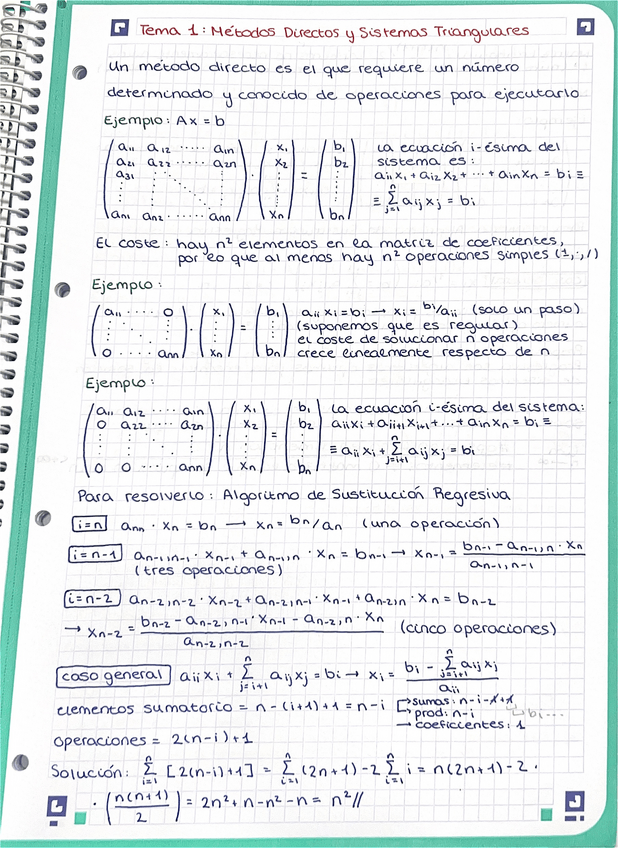 Tema 1: Métodos Directos y Sistemas Triangulares
Un método directo es el que requiere un número
determinado y conocido de operaciones para ejecutarlo
Ejemplo: Ax = b
( a₁₁ a₁₂ ····· a₁ₙ ) ( x₁ ) ( b₁ ) La ecuación i-ésima del
( a₂₁ a₂₂ ····· a₂ₙ ) · ( x₂ ) = ( b₂ ) sistema es:
( a₃₁ ) aᵢ₁x₁ + aᵢ₂x₂ + ··· + aᵢₙxₙ = bᵢ ≡
( aₙ₁ aₙ₂ ······ aₙₙ ) ( xₙ ) ( bₙ ) ≡ Σⱼ₌₁ⁿ aᵢⱼxⱼ = bᵢ
El coste: hay n² elementos en la matriz de coeficientes,
por lo que al menos hay n² operaciones simples (±,·,/)
Ejemplo:
( a₁₁ ···· 0 ) ( x₁ ) ( b₁ ) aᵢᵢ xᵢ = bᵢ → xᵢ = bᵢ/aᵢᵢ (solo un paso)
· = (suponemos que es regular)
el coste de solucionar n operaciones
( 0 ···· aₙₙ ) ( xₙ ) ( bₙ ) crece linealmente respecto de n
Ejemplo:
( a₁₁ a₁₂ ···· a₁ₙ ) ( x₁ ) ( b₁ ) La ecuación i-ésima del sistema:
( 0 a₂₂ ···· a₂ₙ ) · ( x₂ ) = ( b₂ ) aᵢᵢxᵢ + aᵢᵢ₊₁xᵢ₊₁ + ··· + aᵢₙxₙ = bᵢ ≡
( 0 0 ····· aₙₙ ) ( xₙ ) ( bₙ ) ≡ aᵢᵢxᵢ + Σⱼ₌ᵢ₊₁ⁿ aᵢⱼxⱼ = bᵢ
Para resolverlo: Algoritmo de Sustitución Regresiva
i=n aₙₙ · xₙ = bₙ → xₙ = bₙ/aₙ (una operación)
i=n-1 aₙ₋₁,ₙ₋₁ · xₙ₋₁ + aₙ₋₁,ₙ · xₙ = bₙ₋₁ → xₙ₋₁ = (bₙ₋₁ - aₙ₋₁,ₙ · xₙ)/aₙ₋₁,ₙ₋₁
(tres operaciones)
i=n-2 aₙ₋₂,ₙ₋₂ · xₙ₋₂ + aₙ₋₂,ₙ₋₁ · xₙ₋₁ + aₙ₋₂,ₙ · xₙ = bₙ₋₂
→ xₙ₋₂ = (bₙ₋₂ - aₙ₋₂,ₙ₋₁ · xₙ₋₁ - aₙ₋₂,ₙ · xₙ)/aₙ₋₂,ₙ₋₂ (cinco operaciones)
caso general aᵢᵢxᵢ + Σⱼ₌ᵢ₊₁ⁿ aᵢⱼxⱼ = bᵢ → xᵢ = (bᵢ - Σⱼ₌ᵢ₊₁ⁿ aᵢⱼxⱼ)/aᵢᵢ
elementos sumatorio = n-(i+1)+1 = n-i → sumas: n-i-1+1
→ prod: n-i
→ coeficientes: 1
operaciones = 2(n-i)+1
Solución: Σᵢ₌₁ⁿ [2(n-i)+1] = Σᵢ₌₁ⁿ (2n+1) - 2 Σᵢ₌₁ⁿ i = n(2n+1) - 2 ·
· (n(n+1)/2) = 2n² + n - n² - n = n²//